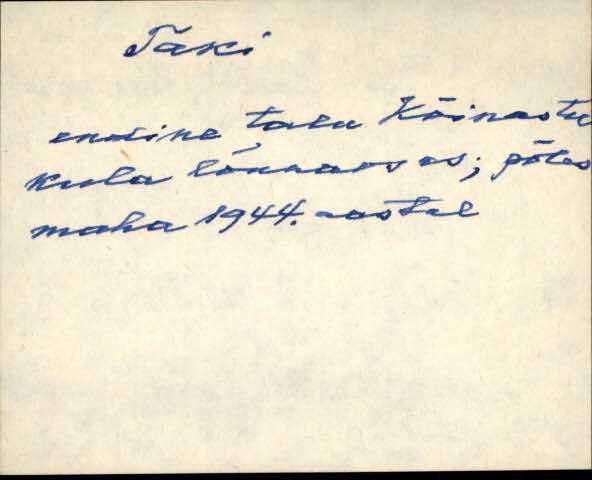 Täki
endine talu Kõinastu
küla lõunaosas; põles
maha 1944. aastal